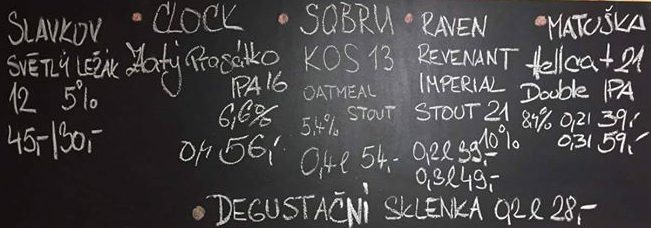 SLAVKOV
SVĚTLÝ LEŽÁK
12 5%
45,-/30,-
CLOCK
Zlatý Prasátko
IPA 16
6,6%
0,4 56,-
SQBRU
KOS 13
OATMEAL
STOUT
5,4%
0,4l 54,-
RAVEN
REVENANT
IMPERIAL
STOUT 21
10%
0,2l 39,-
0,3l 49,-
MATUŠKA
Hellcat 21
Double IPA
8,4% 0,2l 39,-
0,3l 59,-
DEGUSTAČNÍ SKLENKA 0,2l 28,-